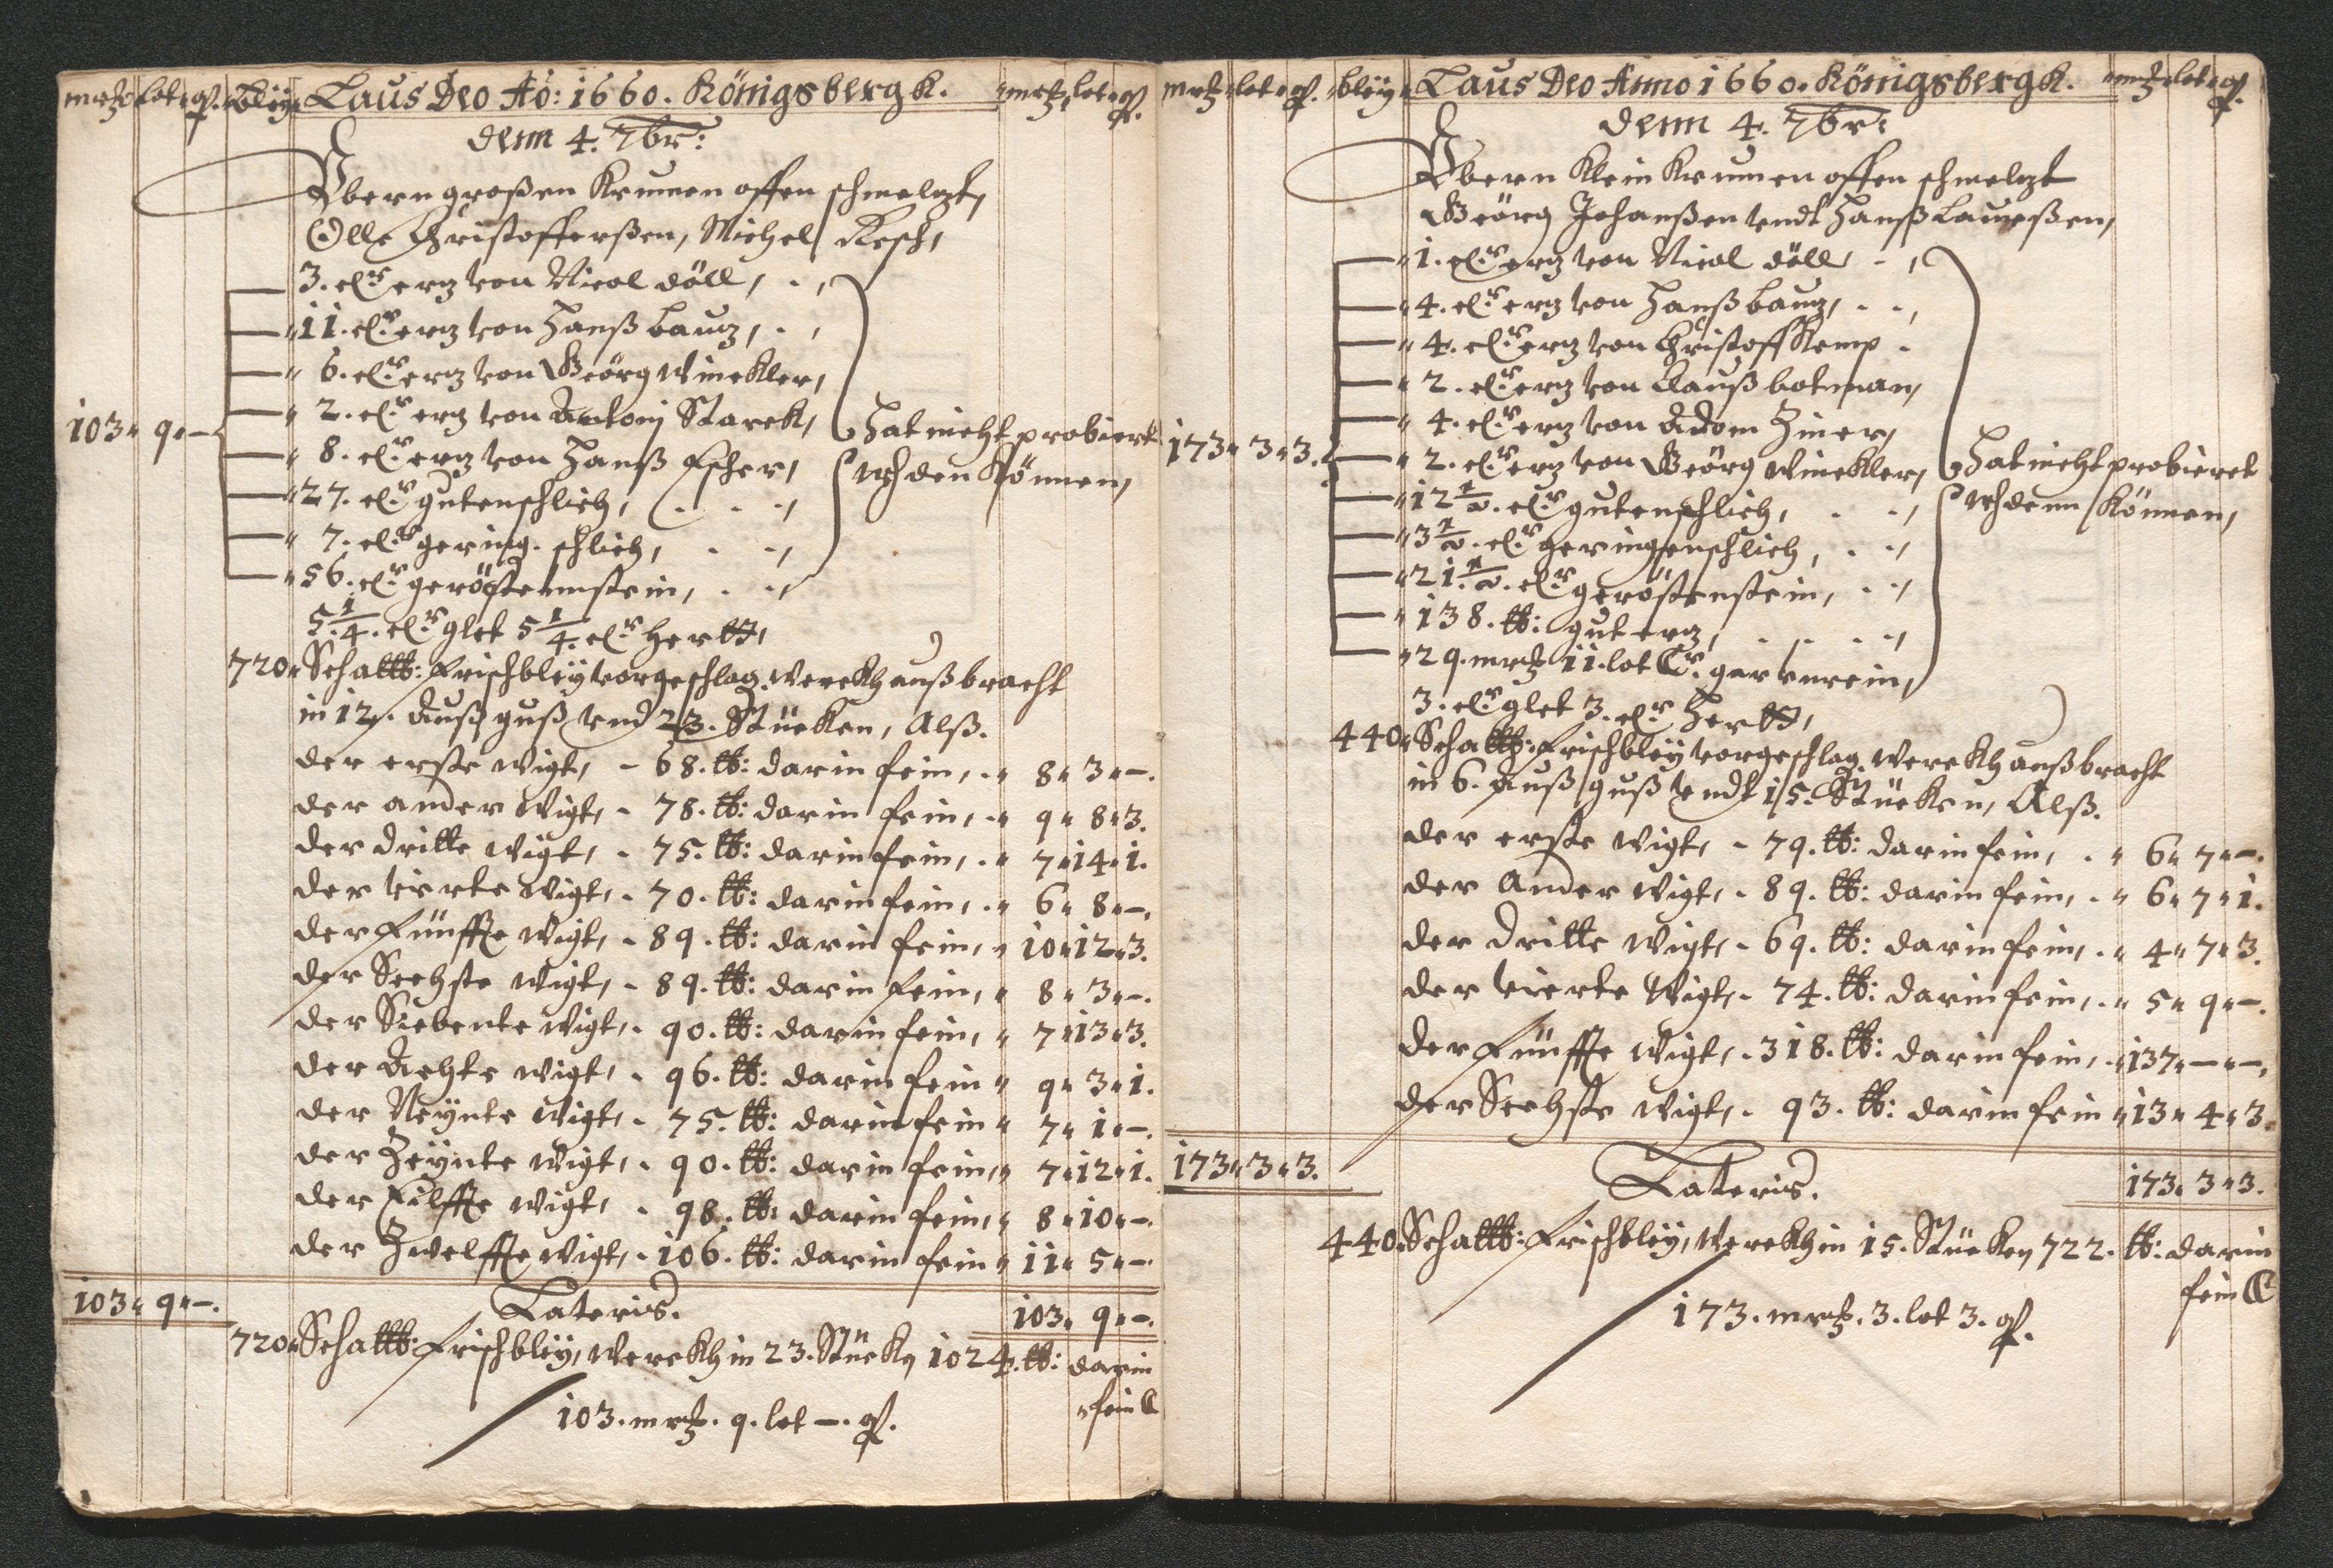 mrk lot q. Bleÿ Laus Deo Ao: 1660. Königsbergk. mrk lot q.
denn 4. 7br:
Vbern großen Krumen offen schmeltzt,
Olle Christofferßen, Michel Resch,
3. Clr ertz von Nicol döll,
11. Clr ertz von Hanß bautz,
6. Clr ertz von Geörg Winckler,
2. Clr ertz von Antonj Starck,
8. Clr ertz von Hanß Escher,
27. Clr gutenschlich,
7. Clr gering. schlich,
56. Clr geröstennstein,
Hat nicht probiert
werden Können,
103 9 —
5 1/4. Clr glet 5 1/4. Clr Hertt,
720 Schaltt: Frischbleÿ vorgeschlag. Werckh außbracht
in 12. Außguß vnd 23. Stücken, Alß.
der erste wigt, 68. tt: darin fein, 8 3 —.
der ander wigt, 78. tt: darin fein, 9 8 3.
der dritte wigt, 75. tt: darin fein, 7 14 1.
der vierte wigt, 70. tt: darin fein, 6 8 —.
der Fünffte wigt, 89. tt: darin fein, 10 12 3.
der Sechste wigt, 89. tt: darin fein, 8 3 —.
der Siebente wigt, 90. tt: darin fein, 7 13 3.
der Achte wigt, 96. tt: darin fein 9 3 1.
der Neÿnte wigt, 75. tt: darin fein 7 1 —.
der Zeÿnte wigt, 90. tt: darin fein, 7 12 1.
der Eilffte wigt, 98. tt: darin fein, 8 10 —.
der Zwelffte wigt, 106. tt: darin fein 11 5 —.
103 9 —. Lateris. 103 9 —.
720 Schaltt: Frischbleÿ, Werckh in 23. Stück, 1024. tt: darin
fein
103. mrk. 9. lot —. q.
mrk lot q. bleÿ Laus Deo Anno 1660. Königsbergk. mrk lot q.
denn 4. 7br:
Vbern Klein Krumen offen schmeltzt
Geörg Johanßen vndt Hanß Laureßen,
1. Clr ertz von Nicol döll
4. Clr ertz von Hanß bautz,
4. Clr ertz von Christoff Kemp
2. Clr ertz von Clauß botman,
4. Clr ertz von Adam Ziner,
2. Clr ertz von Geörg Winckler,
12 1/2. Clr gutenschlich,
3 1/2. Clr geringenschlich,
21. 1/2. Clr geröstenstein,
138. tt: gut ertz,
29. mrk 11. lot
Hat nicht probieret
werdenn Können,
173 3 3.
3. Clr glet 3. Clr Hertt,
440 Schaltt: Frischbleÿ vorgeschlag. Werckh außbracht
in 6. Außguß vndt 15. Stücken, Alß.
der erste wigt, 79. tt: darin fein, 6 7 —.
der Ander wigt, 89. tt: darin fein, 6 7 1.
der dritte wigt, 69. tt: darin fein, 4 7 3.
der vierte wigt, 74. tt: darin fein, 5 9 —.
der Fünffte wigt, 318. tt: darin fein, 137 — —.
der Sechste wigt, 93. tt: darin fein 13 4 3.
173 3 3. Lateris. 173 3 3.
440 Schaltt: Frischbleÿ, Werckh in 15. Stücken 722. tt: darin
fein
173. mrk. 3. lot 3. q.